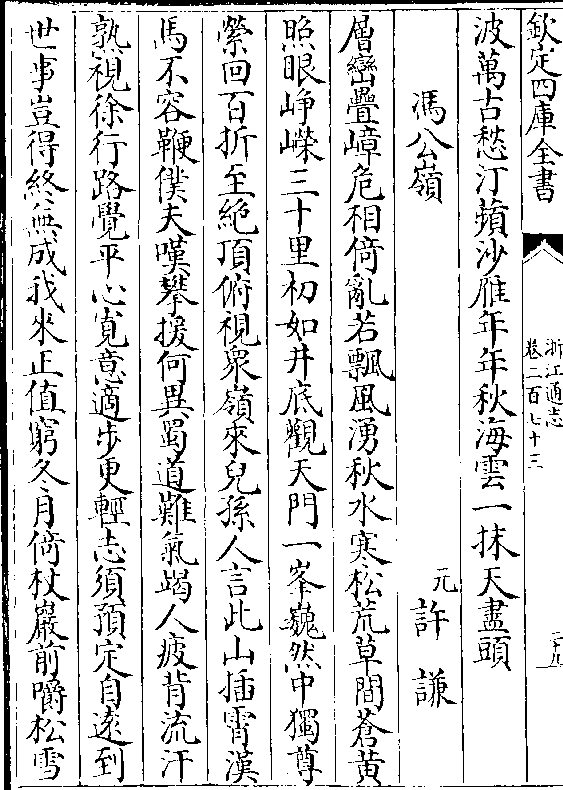 欽定四庫全書
浙江通志
卷二百七十三
二十九
波萬古愁汀蘋沙雁年年秋海雲一抹天盡頭
馮公嶺
元許謙
層巒疊嶂危相倚亂若飄風湧秋水寒松荒草間蒼黄
照眼崢嶸三十里初如井底觀天門一峯巍然中獨尊
縈回百折至絶頂俯視衆嶺來兒孫人言此山插霄漢
馬不容鞭僕夫嘆攀援何異蜀道難氣竭人疲背流汗
孰視徐行路覺平心寛意適步更輕志須預定自遠到
世事豈得終無成我來正值窮冬月倚杖巖前嚼松雪